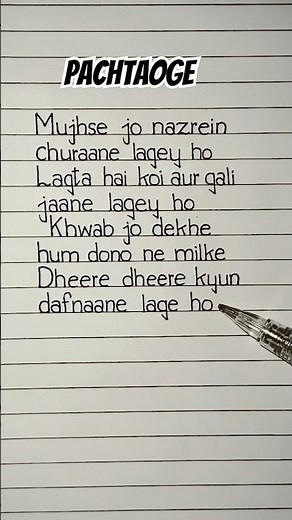 PACHTAOGE
Mujhse jo nazrein
churaane lagey ho
Lagta hai koi aur gali
jaane lagey ho
Khwab jo dekhe
hum dono ne milke
Dheere dheere kyun
dafnaane lage ho